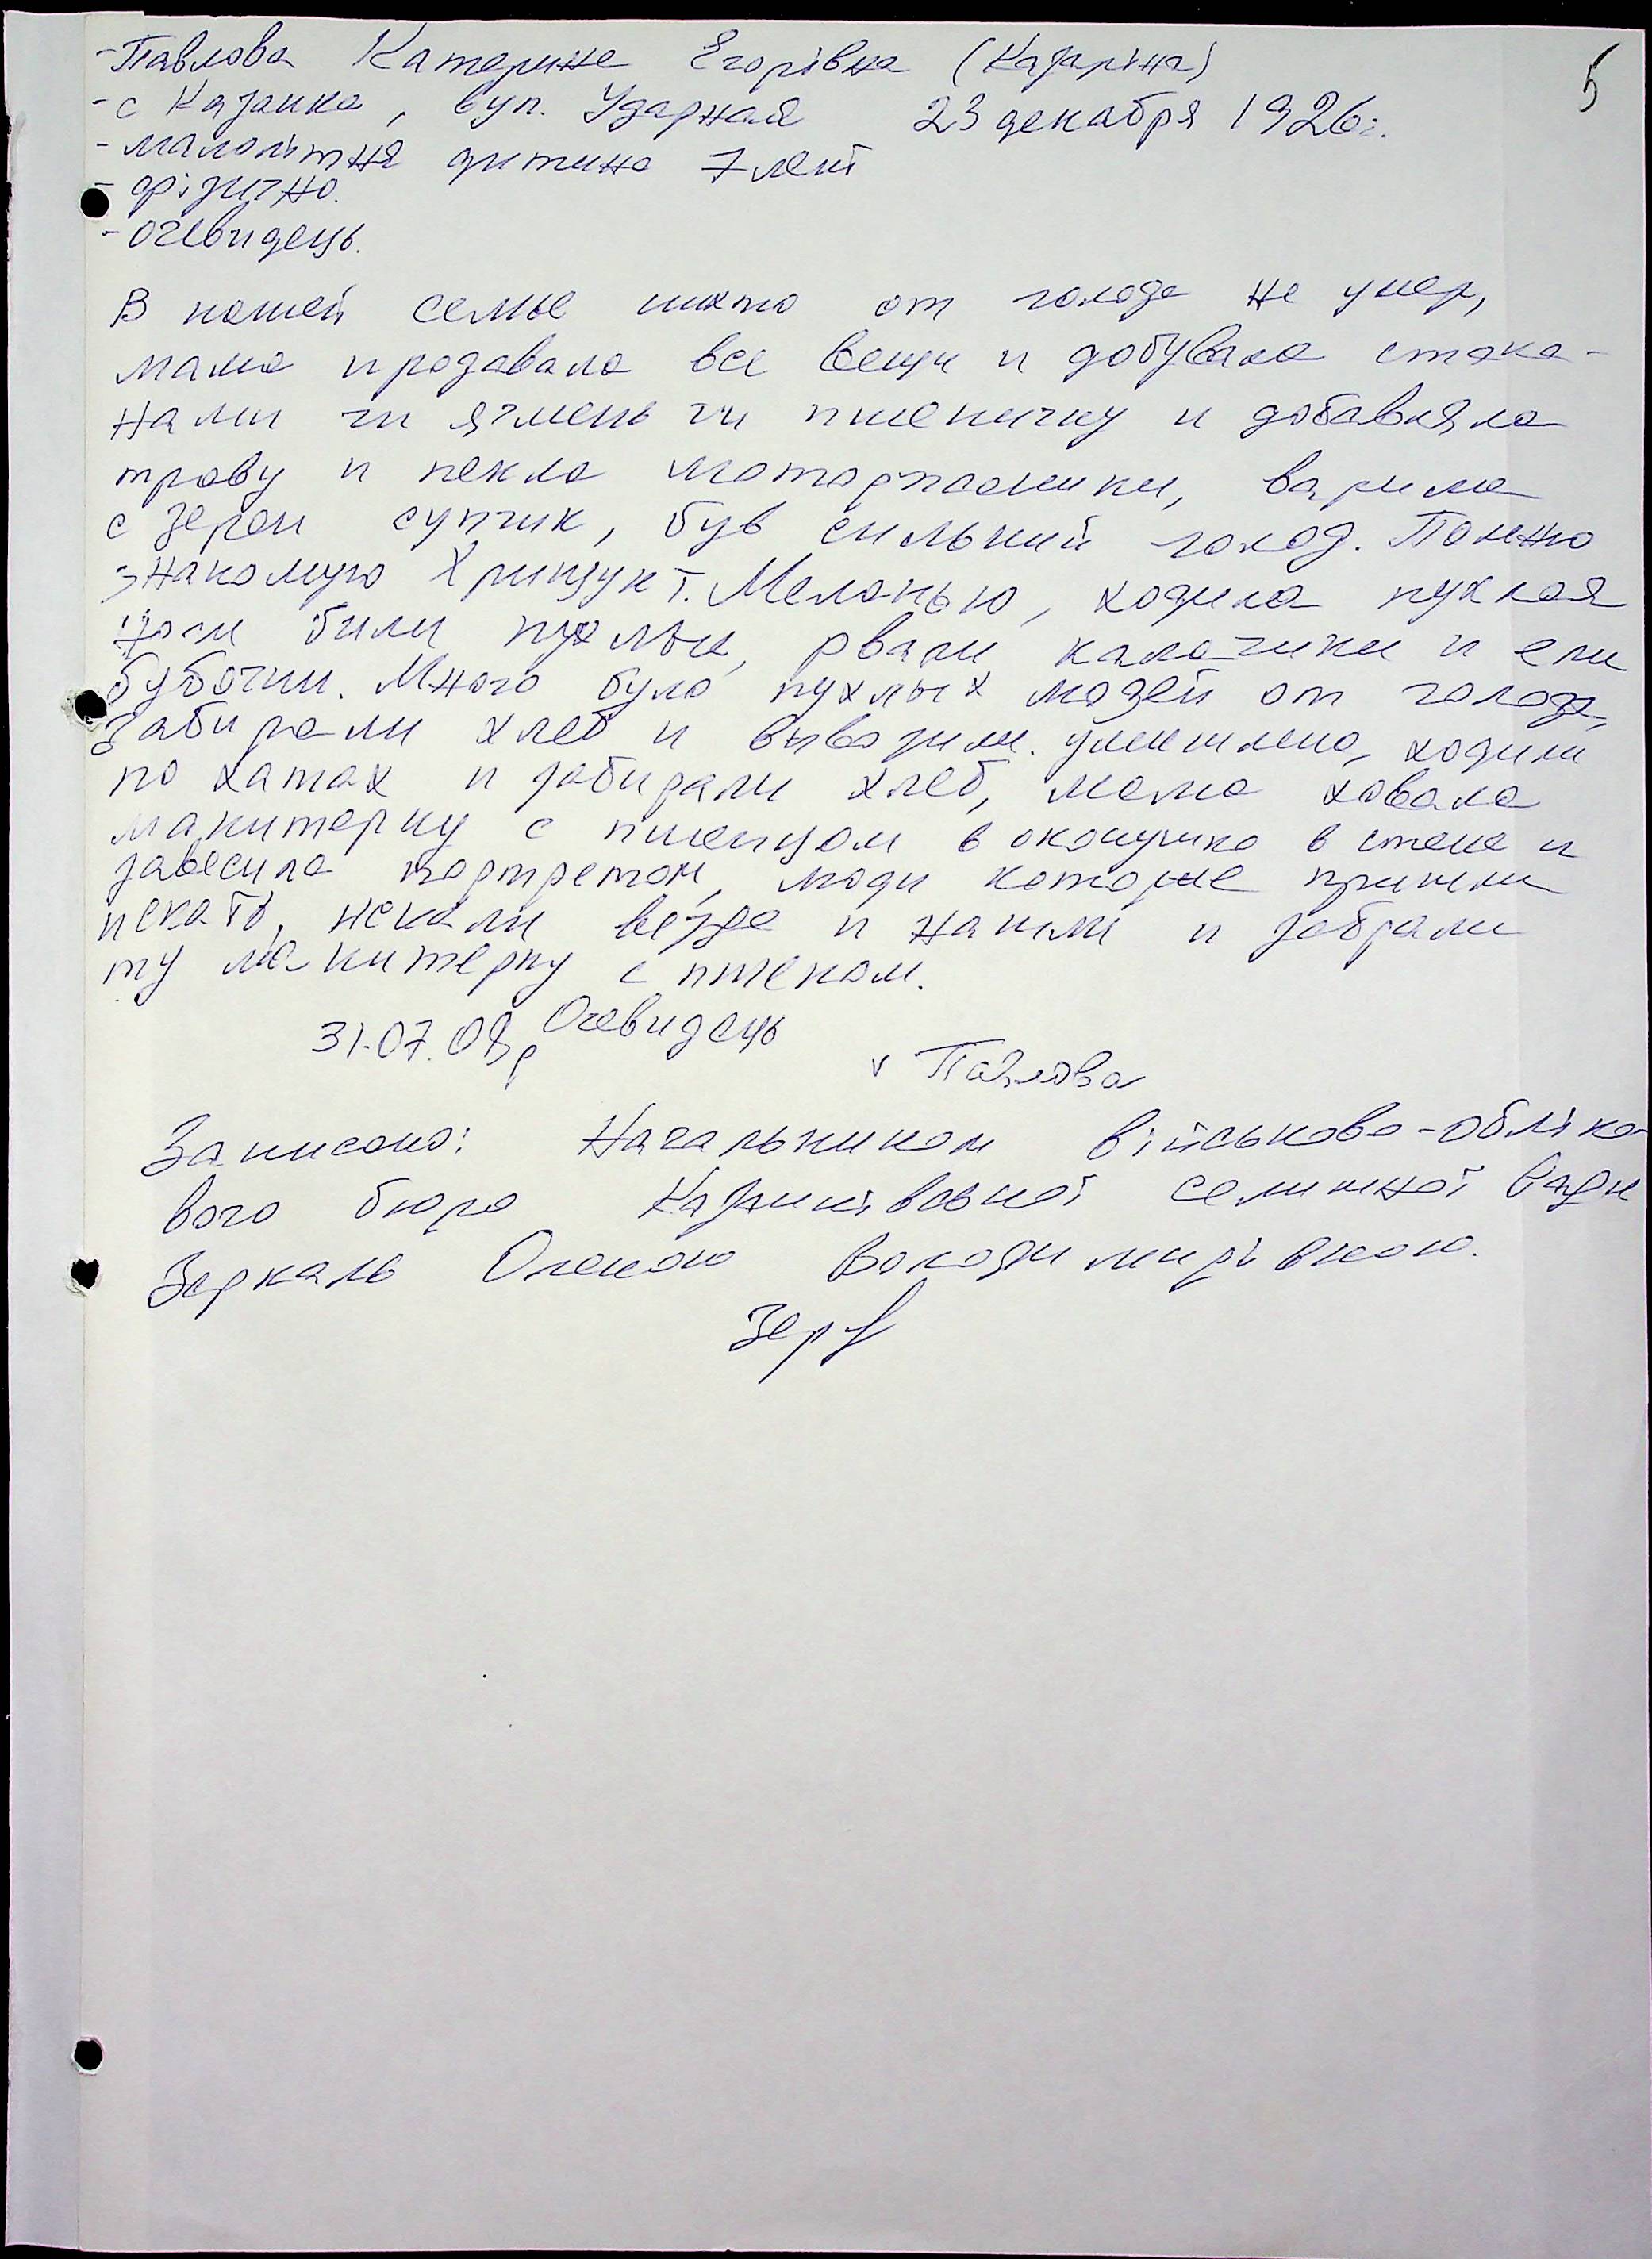 5
- Павлова Катерина Єгорівна (Казаріна)
- с Казанка, вул. Ударная 23 декабря 1926г.
- малолітня дитина 7 лет
- фізично.
- Очевидець.
В нашей семье нихто от голода не умер,
мама продавала все вещи и добувала стака-
нами чи ячмень чи пшеничку и добавляла
траву и пекла маторжаники, варила
с зерен супчик, був сильний голод. Помню
знакомую Хрищук т. Меланью, ходила пухлая
ноги били пухлые, рвали калачики и ели
бубочки. Много було пухлых людей от голода,
забирали хлеб и вывозили. умишлено, ходили
по хатах и забирали хлеб, мама ховала
макитерку с пшенцом в окошушко в стене и
завесила портретом, люди которые пришли
искать, искали везде и нашли и забрали
ту макитерку с пшеном.
31.07.08р Очевидець
v Павлова
Записано: Начальником військово-обліко-
вого бюро Казанківської селищної ради
Зеркаль Оленою Володимирівною.